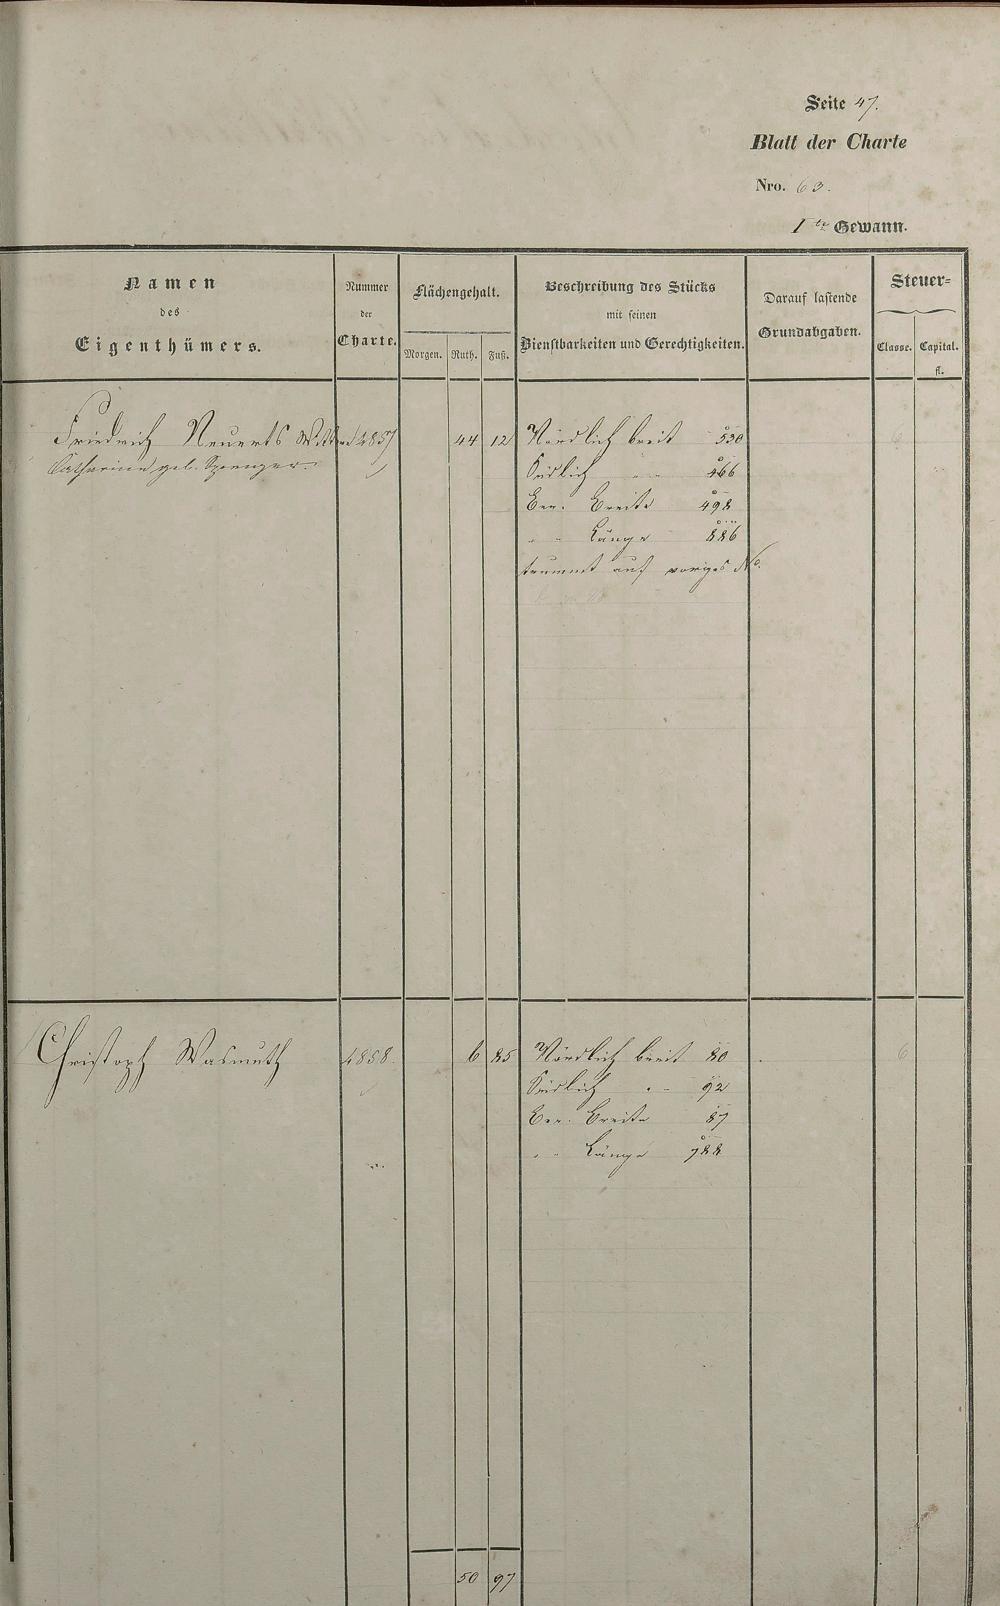 Seite 47.
Blatt der Charte
Nro. 63.
1te Gewann.
Namen des Eigenthümers.
Nummer der Charte.
Flächengehalt.
Morgen. Ruth. Fuß.
Beschreibung des Stücks mit seinen Dienstbarkeiten und Gerechtigkeiten.
Darauf lastende Grundabgaben.
Steuer=
Classe. Capital. fl.
Friedrich Neuerts Wittwe 4857 44 12 Nördlich breit 530
Catharine geb. Sprenger Südlich " " 466
Ber. Breite 498
" " Länge 886
trummt auf voriges No.
Christoph Wasmuth 4858. 6 85 Nördlich breit 80 6
Südlich " " 92
Ber. Breite 87
" " Länge 788
50 97